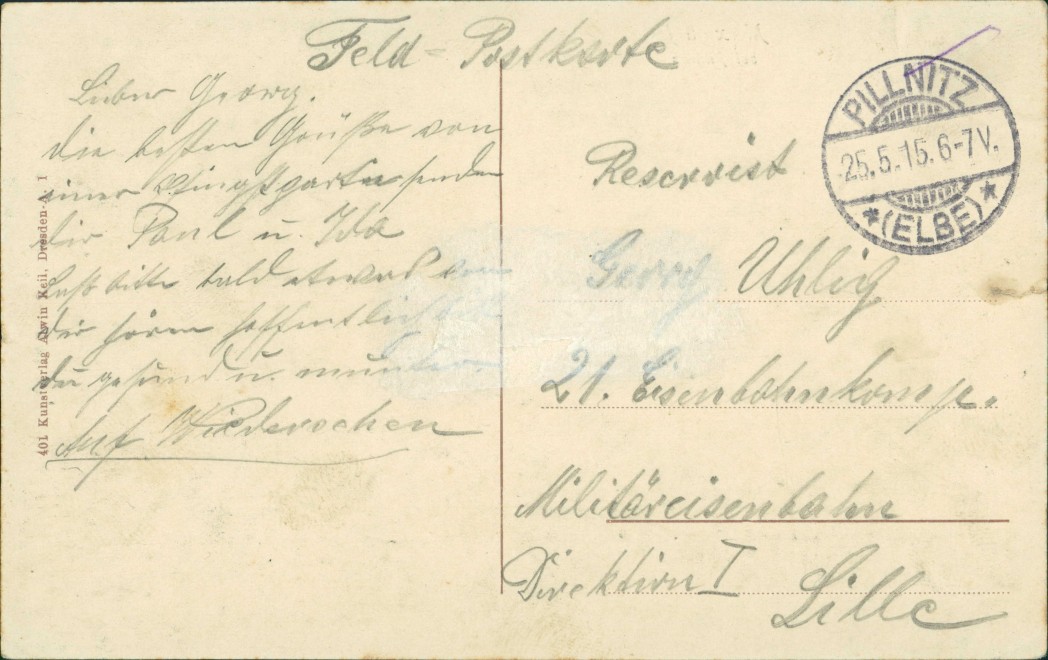 Feld-Postkarte
Lieber Georg.
Die besten Grüße von
einer Pfingstpartie senden
dir Paul u. Ida
Laß bitte bald etwas von
dir hören hoffentlich bist
du gesund u. munter.
Auf Wiedersehen
401 Kunstverlag Alwin Keil, Dresden-A. 1
PILLNITZ
25.5.15.6-7V.
*(ELBE)*
Reservist
Georg Uhlig
21. Eisenbahnkomp.
Militäreisenbahn
Direktion I
Lille